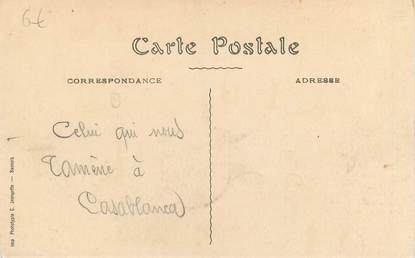 6€
Carte Postale
CORRESPONDANCE
ADRESSE
Celui qui nous
ramène à
Casablanca
Imp. Phototypie